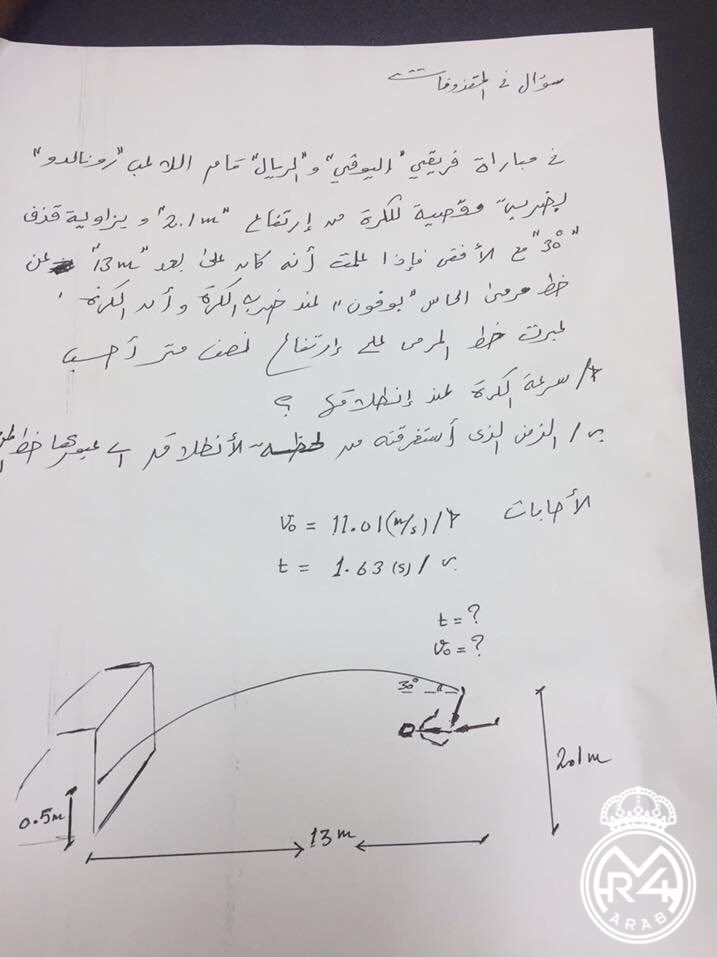 سؤال في المقذوفات
في مباراة فريقي "اليوفي" و"الريال" قام اللاعب "رونالدو"
بضربة مقصية للكرة من إرتفاع "2.1m" و بزاوية قذف
"30°" مع الأفق فإذا علمت أنه كان على بعد "13m" عن
خط مرمى الحارس "بوفون" عند ضربه الكرة و أن الكرة
عبرت خط المرمى على إرتفاع نصف متر أحسب
1/ سرعة الكرة عند إنطلاقها ؟
ب/ الزمن الذى أستغرقته من لحظة الأنطلاقه الى عبورها خط
الأجابات
V₀ = 11.01 (m/s) /1
t = 1.63 (s) / ب
t = ?
V₀ = ?
30°
2.1m
0.5m
13m
RM4
ARAB